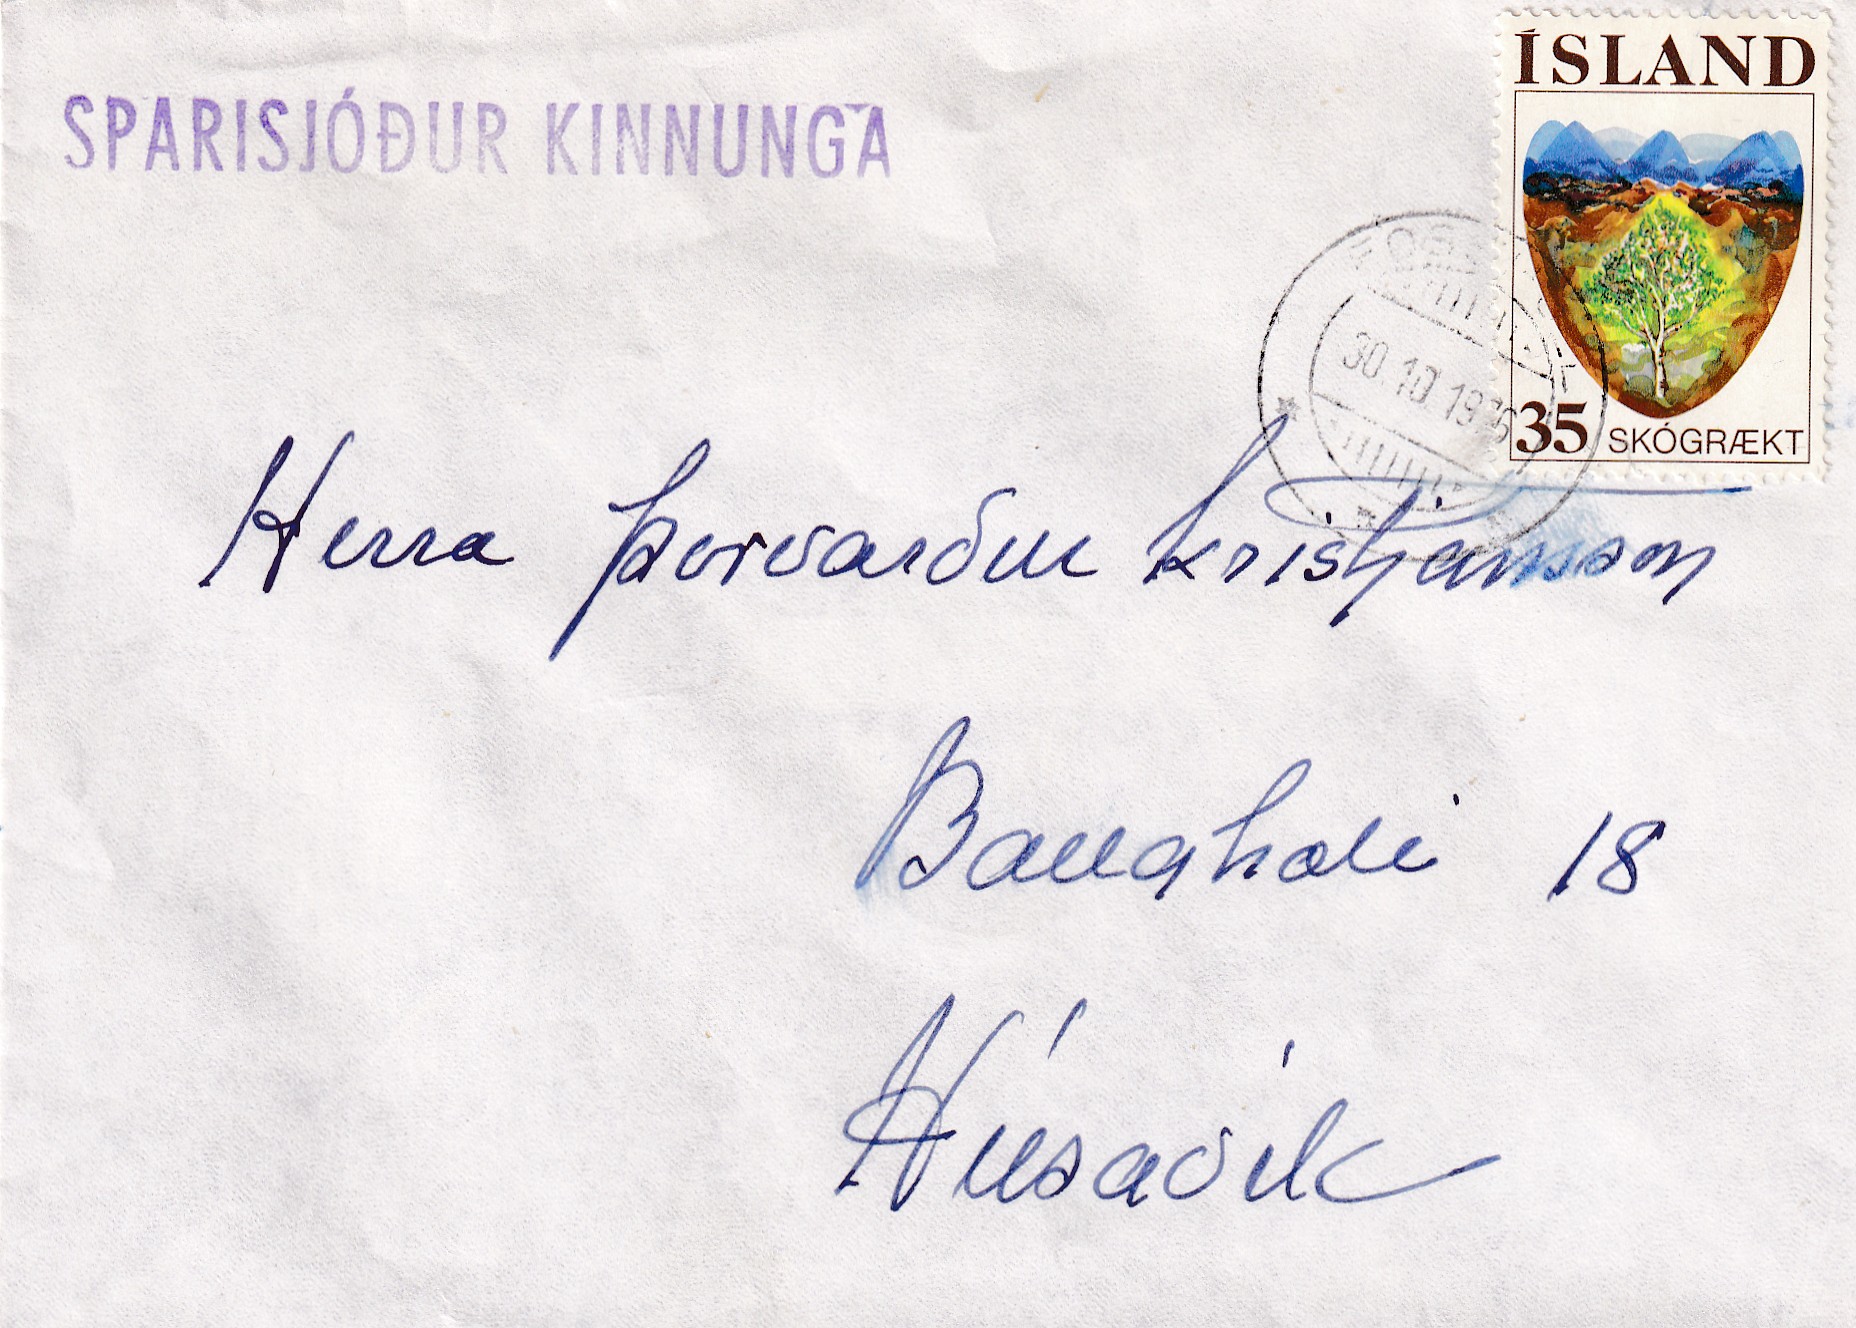 SPARISJÓÐUR KINNUNGA
ÍSLAND
35 SKÓGRÆKT
30.10.1976
Herra Þorvarður Kristjánsson
Baughóli 18
Húsavík